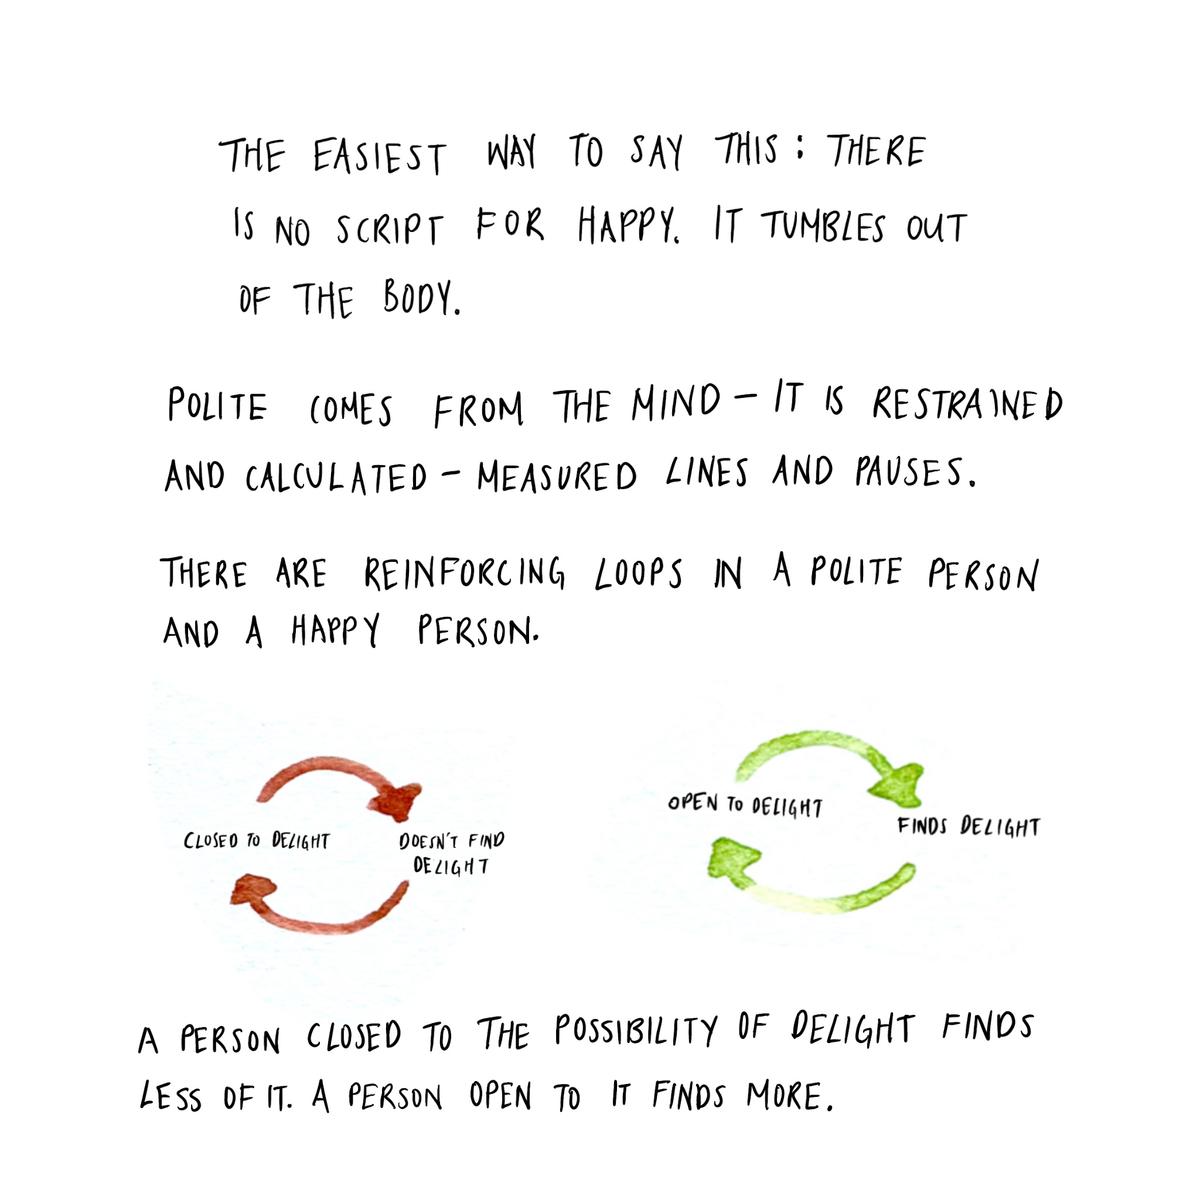 THE EASIEST WAY TO SAY THIS: THERE
IS NO SCRIPT FOR HAPPY. IT TUMBLES OUT
OF THE BODY.
POLITE COMES FROM THE MIND – IT IS RESTRAINED
AND CALCULATED – MEASURED LINES AND PAUSES.
THERE ARE REINFORCING LOOPS IN A POLITE PERSON
AND A HAPPY PERSON.
CLOSED TO DELIGHT
DOESN'T FIND
DELIGHT
OPEN TO DELIGHT
FINDS DELIGHT
A PERSON CLOSED TO THE POSSIBILITY OF DELIGHT FINDS
LESS OF IT. A PERSON OPEN TO IT FINDS MORE.